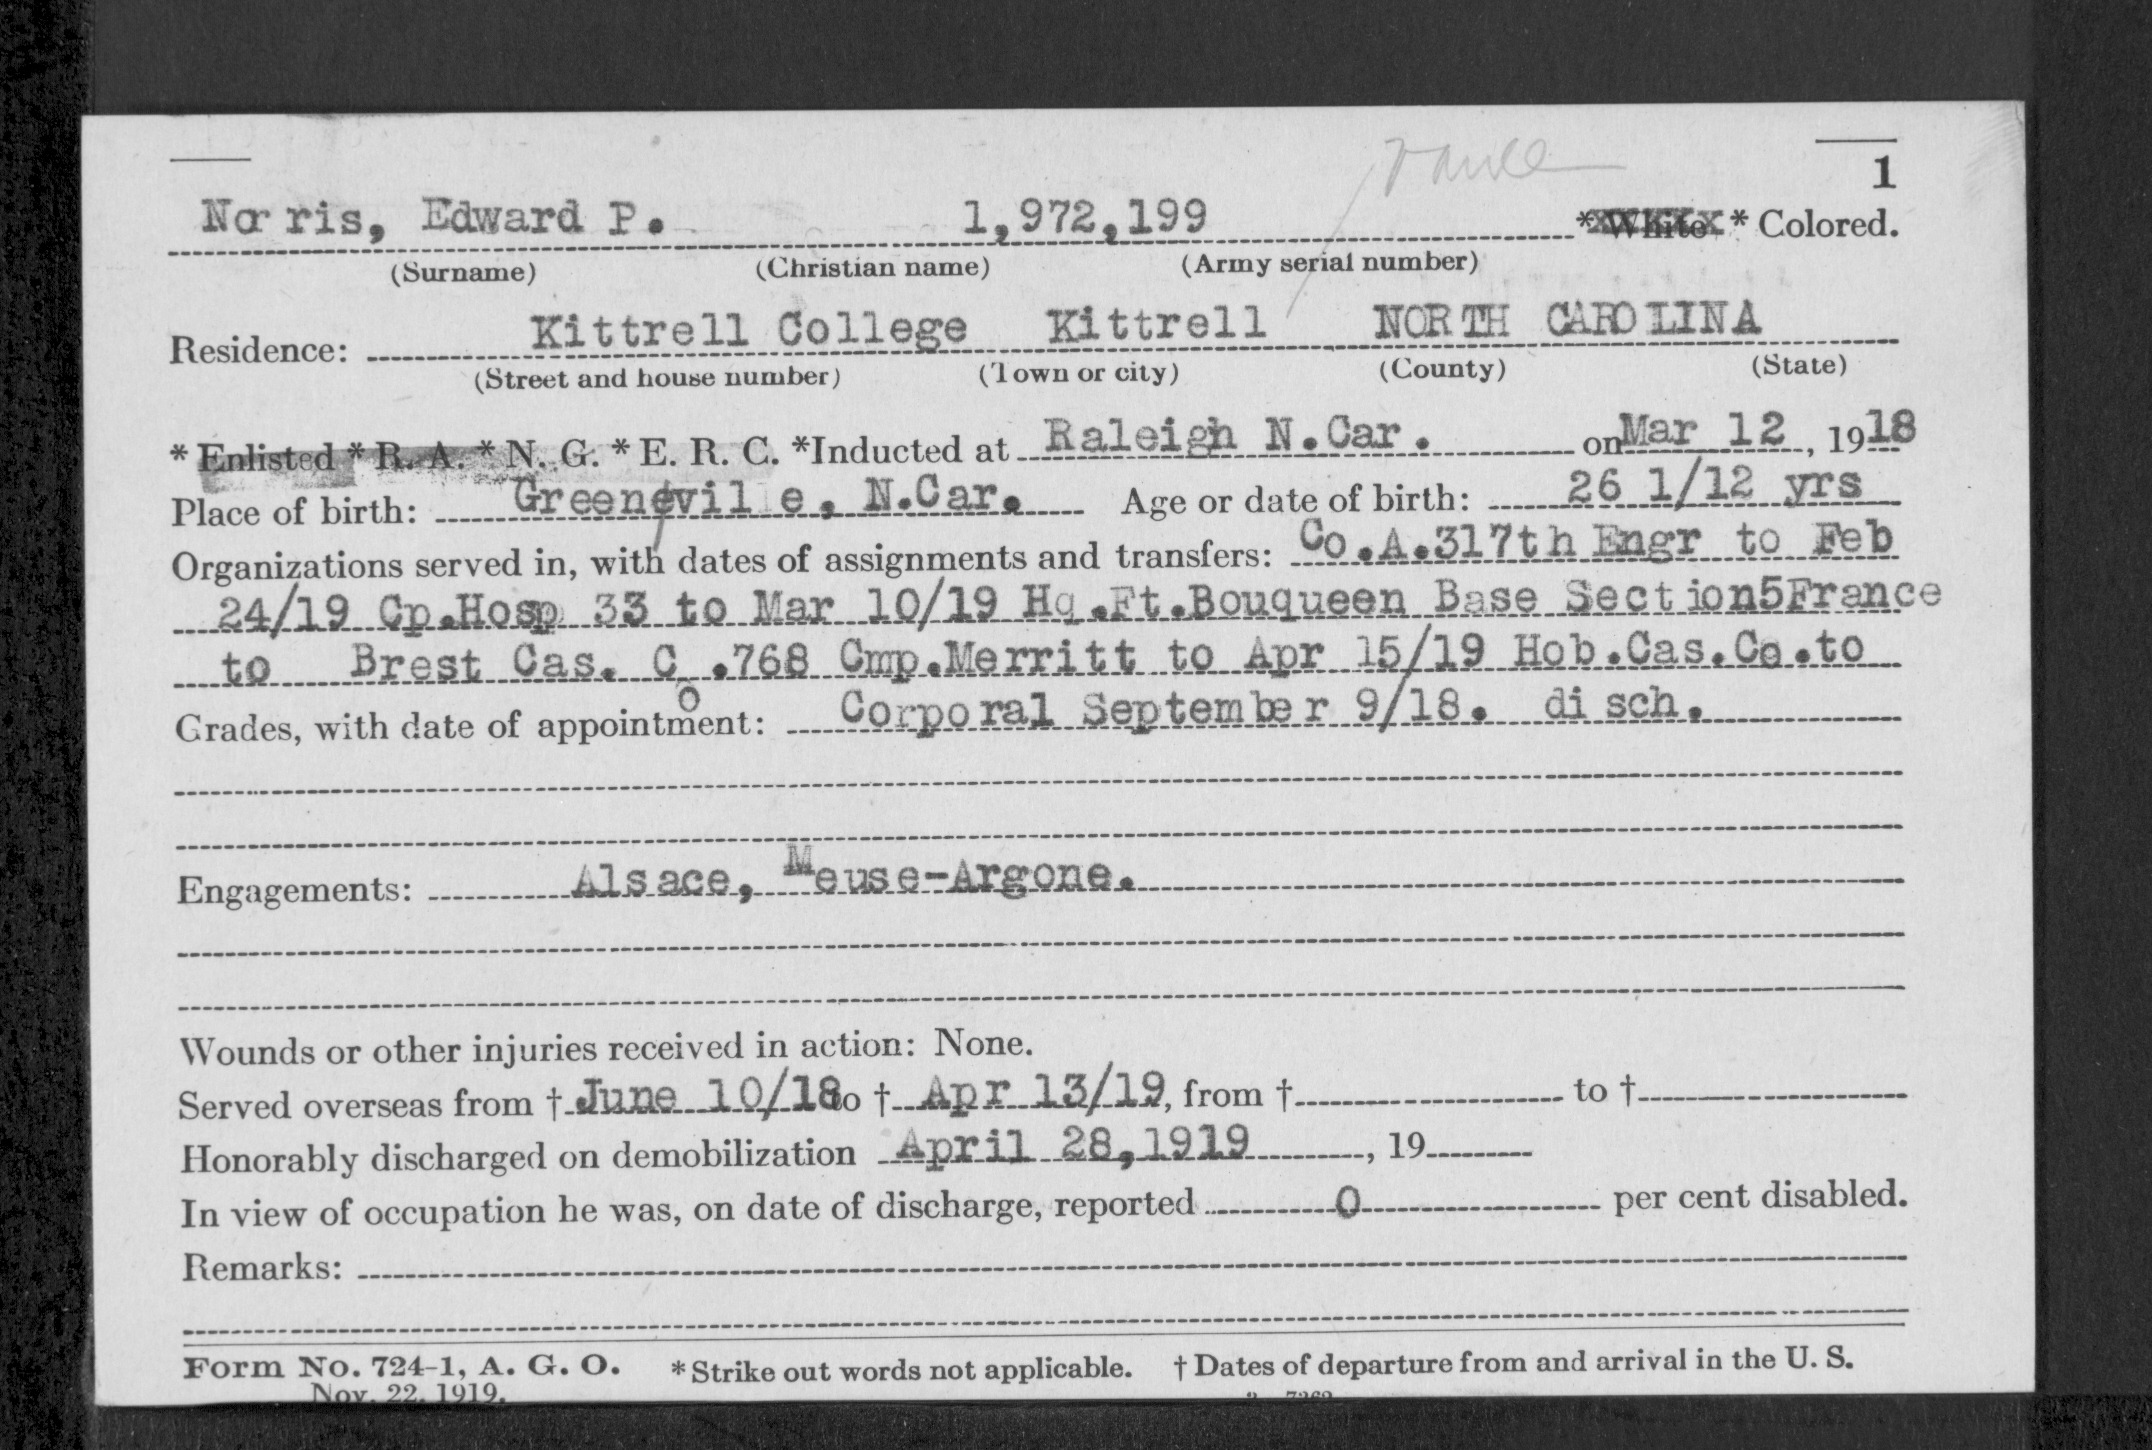 Vance
1
Norris, Edward P. 1,972,199 * White * Colored.
(Surname) (Christian name) (Army serial number)
Kittrell College Kittrell NORTH CAROLINA
Residence:
(Street and house number) (Town or city) (County) (State)
* Enlisted * R. A. * N. G. * E. R. C. *Inducted at Raleigh N.Car. on Mar 12, 1918
Place of birth: Greeneville, N.Car. Age or date of birth: 26 1/12 yrs
Organizations served in, with dates of assignments and transfers: Co.A.317th Engr to Feb
24/19 Cp.Hosp 33 to Mar 10/19 Hq.Ft.Bouqueen Base Section5France
to Brest Cas. Co.768 Cmp.Merritt to Apr 15/19 Hob.Cas.Co.to
Grades, with date of appointment: Corporal September 9/18. disch.
Engagements: Alsace, Meuse-Argone.
Wounds or other injuries received in action: None.
Served overseas from † June 10/18 to † Apr 13/19, from † to †
Honorably discharged on demobilization April 28,1919, 19
In view of occupation he was, on date of discharge, reported 0 per cent disabled.
Remarks:
Form No. 724-1, A. G. O. * Strike out words not applicable. † Dates of departure from and arrival in the U. S.
Nov. 22, 1919.